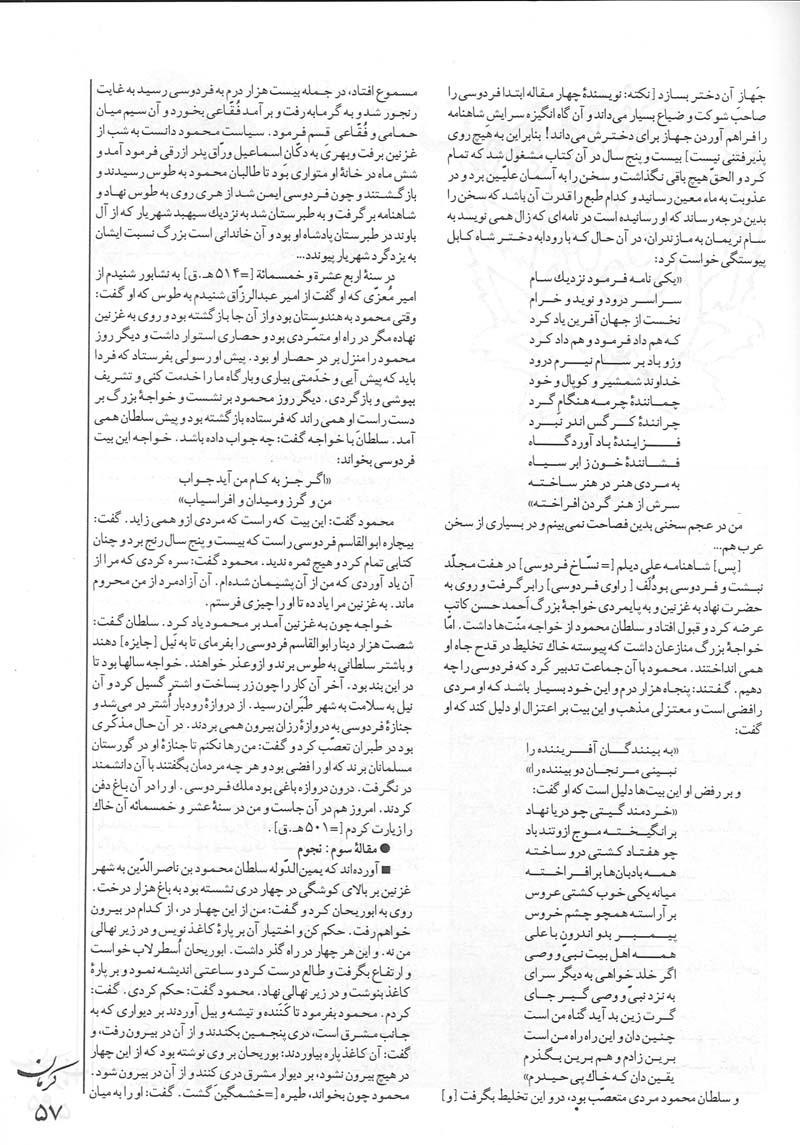 جَهاز آن دختر بسازد [نکته: نویسندهٔ چهار مقاله ابتدا فردوسی را
صاحب شوکت و ضیاع بسیار می‌داند و آن گاه انگیزه سرایش شاهنامه
را فراهم آوردن جهاز برای دخترش می‌داند! بنابراین به هیچ روی
پذیرفتنی نیست] بیست و پنج سال در آن کتاب مشغول شد که تمام
کرد و الحقّ هیچ باقی نگذاشت و سخن را به آسمان علیّین برد و در
عذوبت به ماء معین رسانید و کدام طبع را قدرت آن باشد که سخن را
بدین درجه رساند که او رسانیده است در نامه‌ای که زال همی نویسد به
سام نریمان به مازندران، در آن حال که با رودابه دختر شاه کابل
پیوستگی خواست کرد:
«یکی نامه فرمود نزدیك سام
سراسر درود و نوید و خرام
نخست از جهان آفرین یاد کرد
که هم داد فرمود و هم داد کرد
وزو باد بر سام نیرم درود
خداوند شمشیر و کوپال و خود
چمانندهٔ چرمه هنگام گرد
چرانندهٔ کرگس اندر نبرد
فزایندهٔ باد آوردگاه
فشانندهٔ خون ز ابر سیاه
به مردی هنر در هنر ساخته
سرش از هنر گردن افراخته»
من در عجم سخنی بدین فصاحت نمی‌بینم و در بسیاری از سخن
عرب هم...
[پس] شاهنامه علی دیلم [=نسّاخ فردوسی] در هفت مجلّد
نبشت و فردوسی بودُلَف [راوی فردوسی] را برگرفت و روی به
حضرت نهاد به غزنین و به پایمردی خواجهٔ بزرگ اَحمد حسن کاتب
عرضه کرد و قبول افتاد و سلطان محمود از خواجه منّت‌ها داشت. امّا
خواجهٔ بزرگ منازعان داشت که پیوسته خاك تخلیط در قدح جاه او
همی انداختند. محمود با آن جماعت تدبیر کرد که فردوسی را چه
دهیم. گفتند: پنجاه هزار درم و این خود بسیار باشد که او مردی
رافضی است و معتزلی مذهب و این بیت بر اعتزال او دلیل کند که او
گفت:
«به بینندگان آفریننده را
نبینی مرنجان دو بیننده را»
و بر رفض او این بیت‌ها دلیل است که او گفت:
«خردمند گیتی چو دریا نهاد
برانگیخته موج ازو تند باد
چو هفتاد کشتی درو ساخته
همه بادبان‌ها برافراخته
میانه یکی خوب کشتی عروس
برآراسته همچو چشم خروس
پیمبر بدو اندرون با علی
همه اهل بیت نبیّ و وصی
اگر خلد خواهی به دیگر سرای
به نزد نبیّ و وصی گیر جای
گرت زین بد آید گناه من است
چنین دان و این راه راه من است
برین زادم و هم برین بگذرم
یقین دان که خاك پی حیدرم»
و سلطان محمود مردی متعصّب بود، درو این تخلیط بگرفت [و]
مسموع افتاد، در جمله بیست هزار درم به فردوسی رسید به غایت
رنجور شد و به گرمابه رفت و بر آمد فُقّاعی بخورد و آن سیم میان
حمامی و فُقّاعی قسم فرمود. سیاست محمود دانست به شب از
غزنین برفت و بهریَ به دکّان اسماعیل ورّاق پدر ازرقی فرمود آمد و
شش ماه در خانهٔ او متواری بود تا طالبان محمود به طوس رسیدند و
بازگشتند و چون فردوسی ایمن شد از هری روی به طوس نهاد و
شاهنامه برگرفت و به طبرستان شد به نزدیك سپهبد شهریار که از آل
باوند در طبرستان پادشاه او بود و آن خاندانی است بزرگ نسبت ایشان
به یزدگرد شهریار پیوندد...
در سنهٔ اربع عشرة و خمسمائة [=۵۱۴هـ.ق] به نشابور شنیدم از
امیر مُعزّی که او گفت از امیر عبدالرزّاق شنیدم به طوس که او گفت:
وقتی محمود به هندوستان بود و از آن جا بازگشته بود و روی به غزنین
نهاده مگر در راه او متمّردی بود و حصاری استوار داشت و دیگر روز
محمود را منزل بر در حصار او بود. پیش او رسولی بفرستاد که فردا
باید که پیش آیی و خدمتی بیاری و بارگاه ما را خدمت کنی و تشریف
بپوشی و بازگردی. دیگر روز محمود برنشست و خواجهٔ بزرگ بر
دست راست او همی راند که فرستاده بازگشته بود و پیش سلطان همی
آمد. سلطان با خواجه گفت: چه جواب داده باشد. خواجه این بیت
فردوسی بخواند:
«اگر جز به کام من آید جواب
من و گرز و میدان و افراسیاب»
محمود گفت: این بیت که راست که مردی ازو همی زاید. گفت:
بیچاره ابوالقاسم فردوسی راست که بیست و پنج سال رنج برد و چنان
کتابی تمام کرد و هیچ ثمره ندید. محمود گفت: سره کردی که مرا از
آن یاد آوردی که من از آن پشیمان شده‌ام. آن آزادمرد از من محروم
ماند. به غزنین مرا یاد ده تا او را چیزی فرستم.
خواجه چون به غزنین آمد بر محمود یاد کرد. سلطان گفت:
شصت هزار دینار ابوالقاسم فردوسی را بفرمای تا به نَیل [جایزه] دهند
و باشتر سلطانی به طوس برند و ازو عذر خواهند. خواجه سالها بود تا
در این بند بود. آخر آن کار را چون زر بساخت و اشتر گسیل کرد و آن
نیل به سلامت به شهر طَبَران رسید. از دروازهٔ رودبار اُشتر در می‌شد و
جنازهٔ فردوسی به دروازهٔ رزان بیرون همی بردند. در آن حال مذکّری
بود در طبران تعصّب کرد و گفت: من رها نکنم تا جنازهٔ او در گورستان
مسلمانان برند که او رافضی بود و هر چه مردمان بگفتند با آن دانشمند
در نگرفت. درون دروازه باغی بود ملك فردوسی. او را در آن باغ دفن
کردند. امروز هم در آن جاست و من در سنهٔ عشر و خمسمائه آن خاك
را زیارت کردم [=۵۰۱هـ.ق].
● مقالهٔ سوم: نجوم
■ آورده‌اند که یمین‌الدّوله سلطان محمود بن ناصرالدّین به شهر
غزنین بر بالای کوشگی در چهار دری نشسته بود به باغ هزار درخت.
روی به ابوریحان کرد و گفت: من از این چهار در، از کدام در بیرون
خواهم رفت. حکم کن و اختیار آن بر پارهٔ کاغذ نویس و در زیر نهالی
من نه. و این هر چهار در راه گذر داشت. ابوریحان اُسطرلاب خواست
و ارتفاع بگرفت و طالع درست کرد و ساعتی اندیشه نمود و بر پارهٔ
کاغذ بنوشت و در زیر نهالی نهاد. محمود گفت: حکم کردی. گفت:
کردم. محمود بفرمود تا کَننده و تیشه و بیل آوردند بر دیواری که به
جانب مشرق است، دری پنجمین بکندند و از آن در بیرون رفت، و
گفت: آن کاغذ پاره بیاوردند: بوریحان بر وی نوشته بود که از این چهار
در هیچ بیرون نشود، بر دیوار مشرق دری کنند و از آن در بیرون شود.
محمود چون بخواند، طیره [=خشمگین] گشت. گفت: او را به میان
کرمان
۵۷